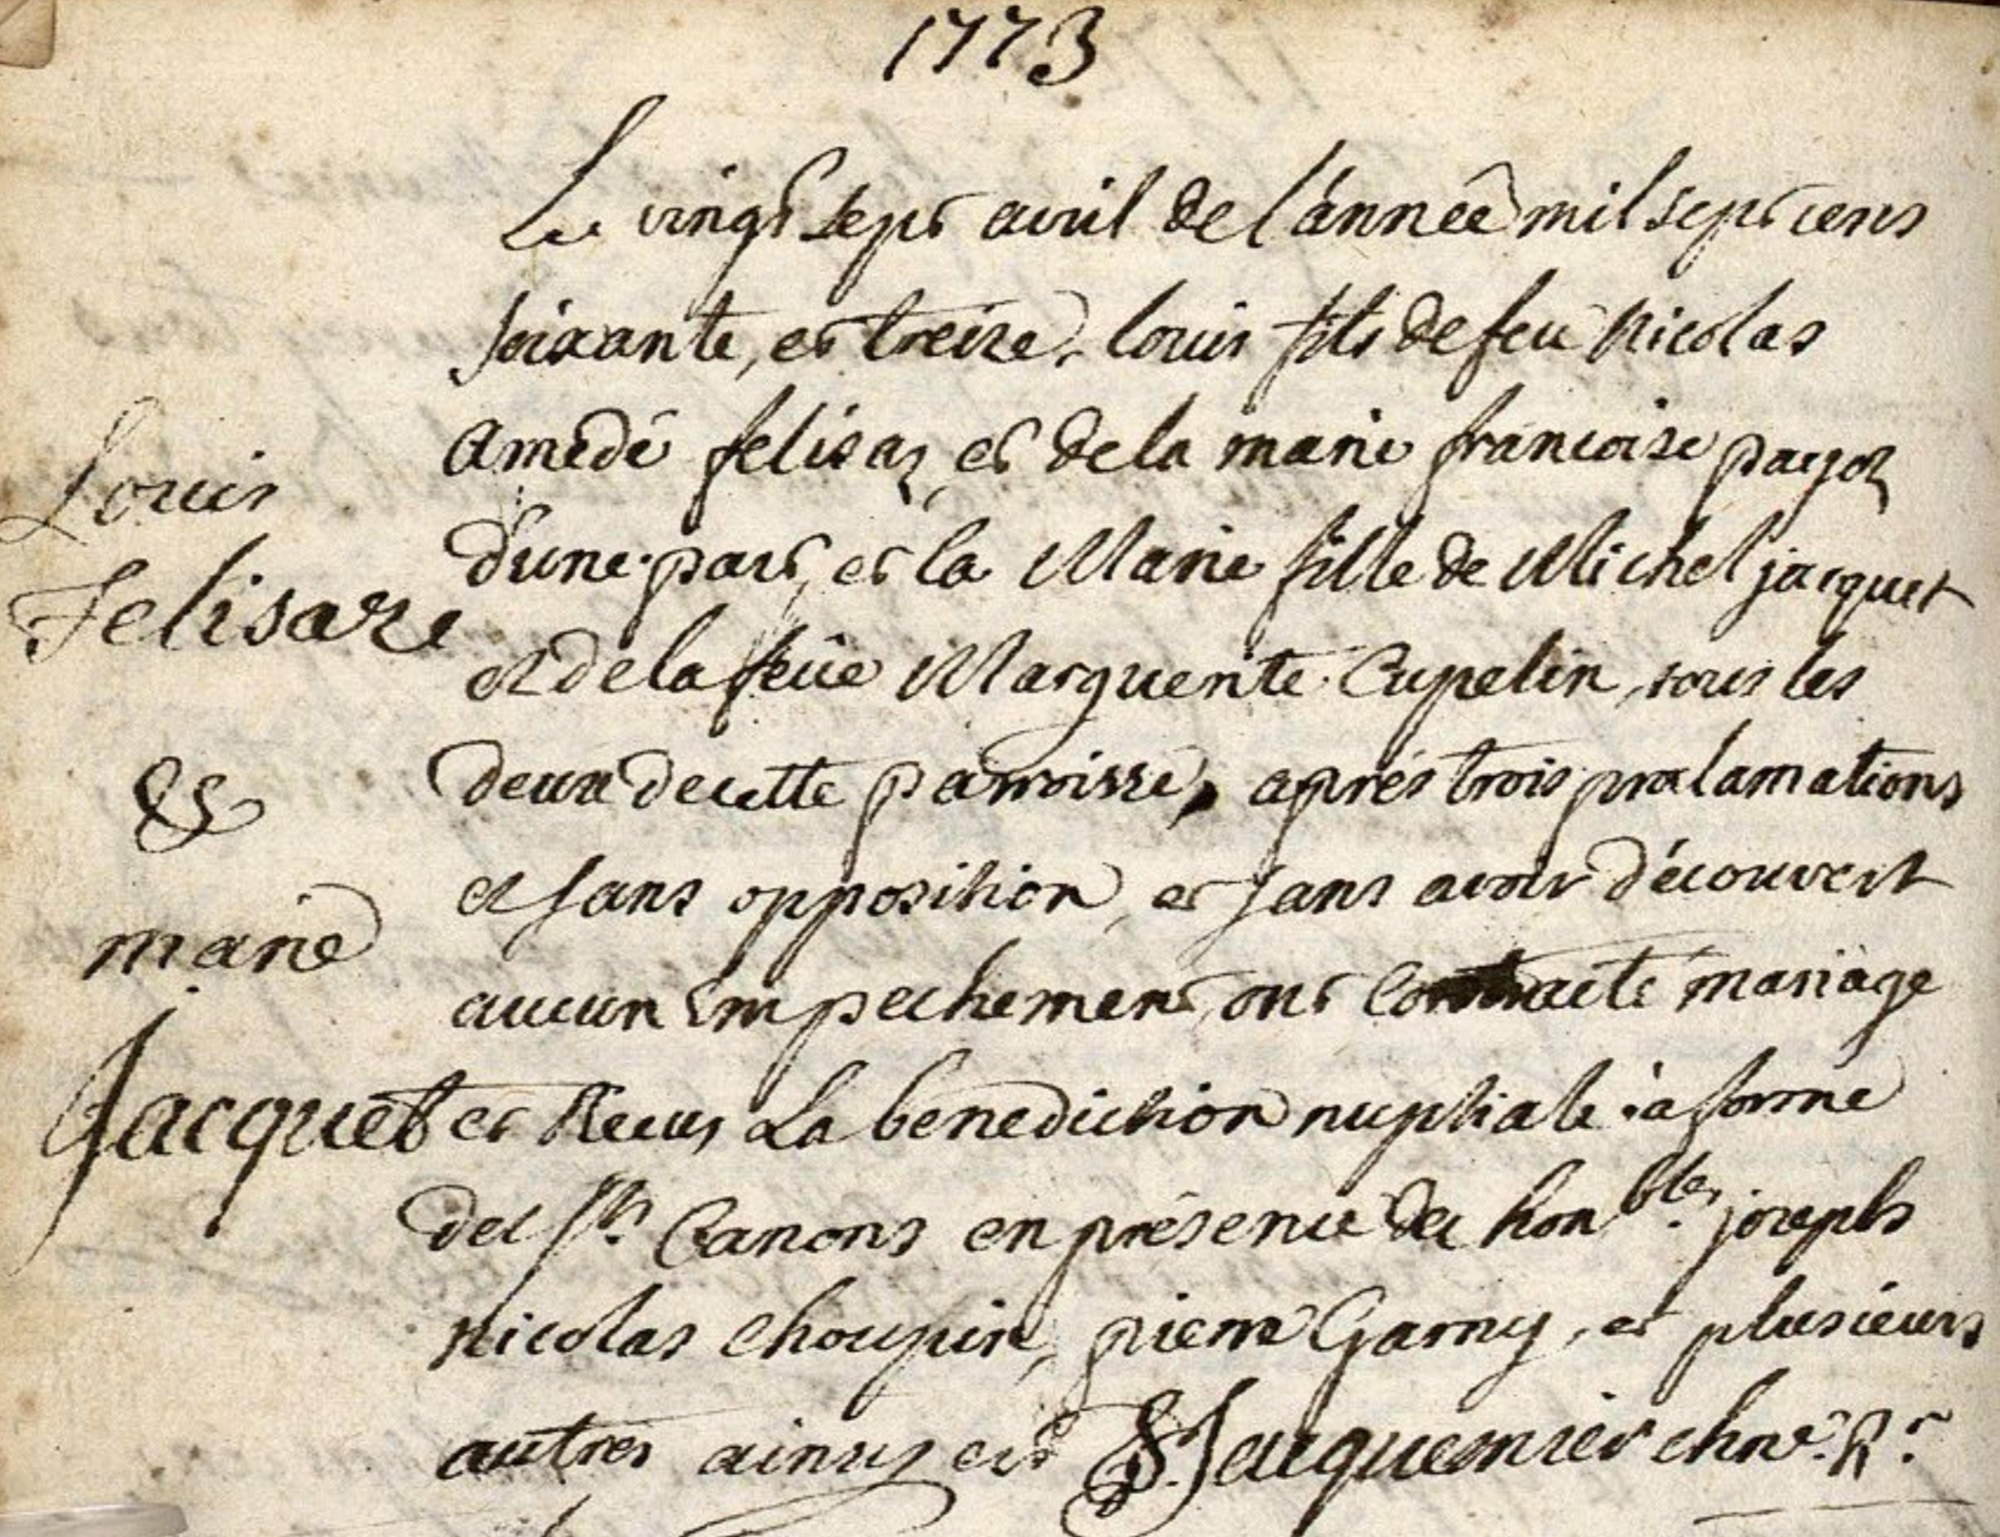 1773
Le vingt sept avril de l'année mil sept cens
soixante, et treize, louis fils de feu Nicolas
Amedé felisaz, et de la marie francoise payot
d'une part, et la Marie fille de Michel jacquet
et de la feüe Marguerite Cupelin, tous les
deux de cette parroisse, aprés trois proclamations
et sans opposition, et sans avoir découvert
aucun empechement, ont contracté mariage
et Recus La benediction nuptiale à forme
des Sts Canons en présence des honbles joseph
Nicolas Choupin, pierre Garny, et plusieurs
autres ainsy est S. Jacquemier chne. Rr.
Louis
Felisaze
&
marie
Jacquet